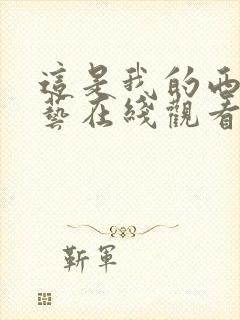 這是我的西
藝在綫觀看
靳軍